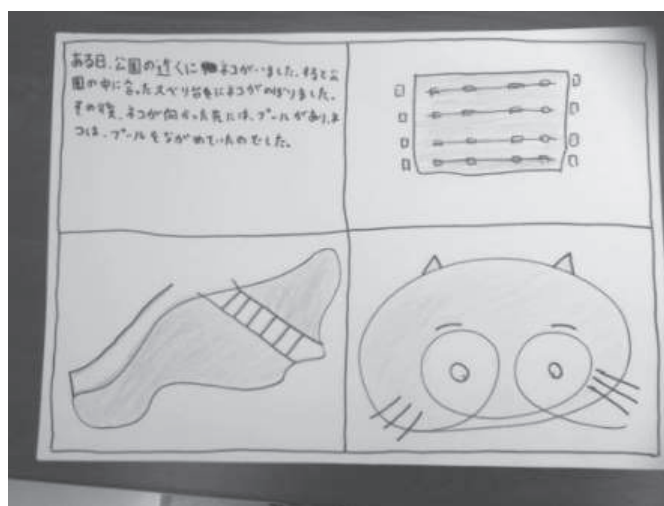 ある日、公園の近くにネコがいました。すると公
園の中に合ったスベリ台をにネコがのぼりました。
その後、ネコが向かった先には、プールがあり、ネ
コは、プールをながめていたのでした。